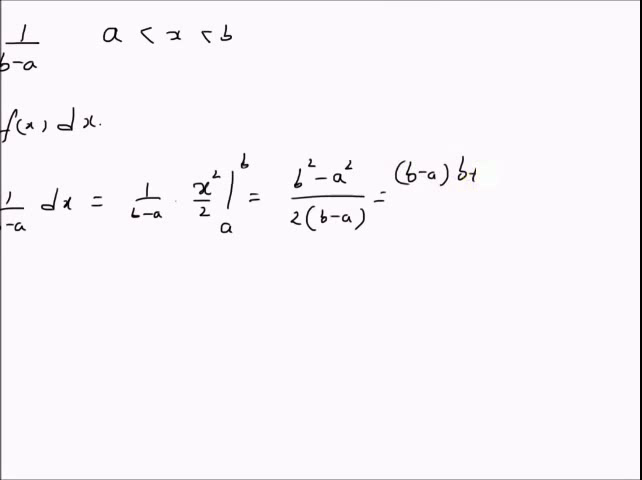 1/(b-a) a < x < b
f(x) dx.
1/(-a) dx = 1/(b-a) · x²/2 |ₐᵇ = (b² - a²)/(2(b-a)) = (b-a) b+